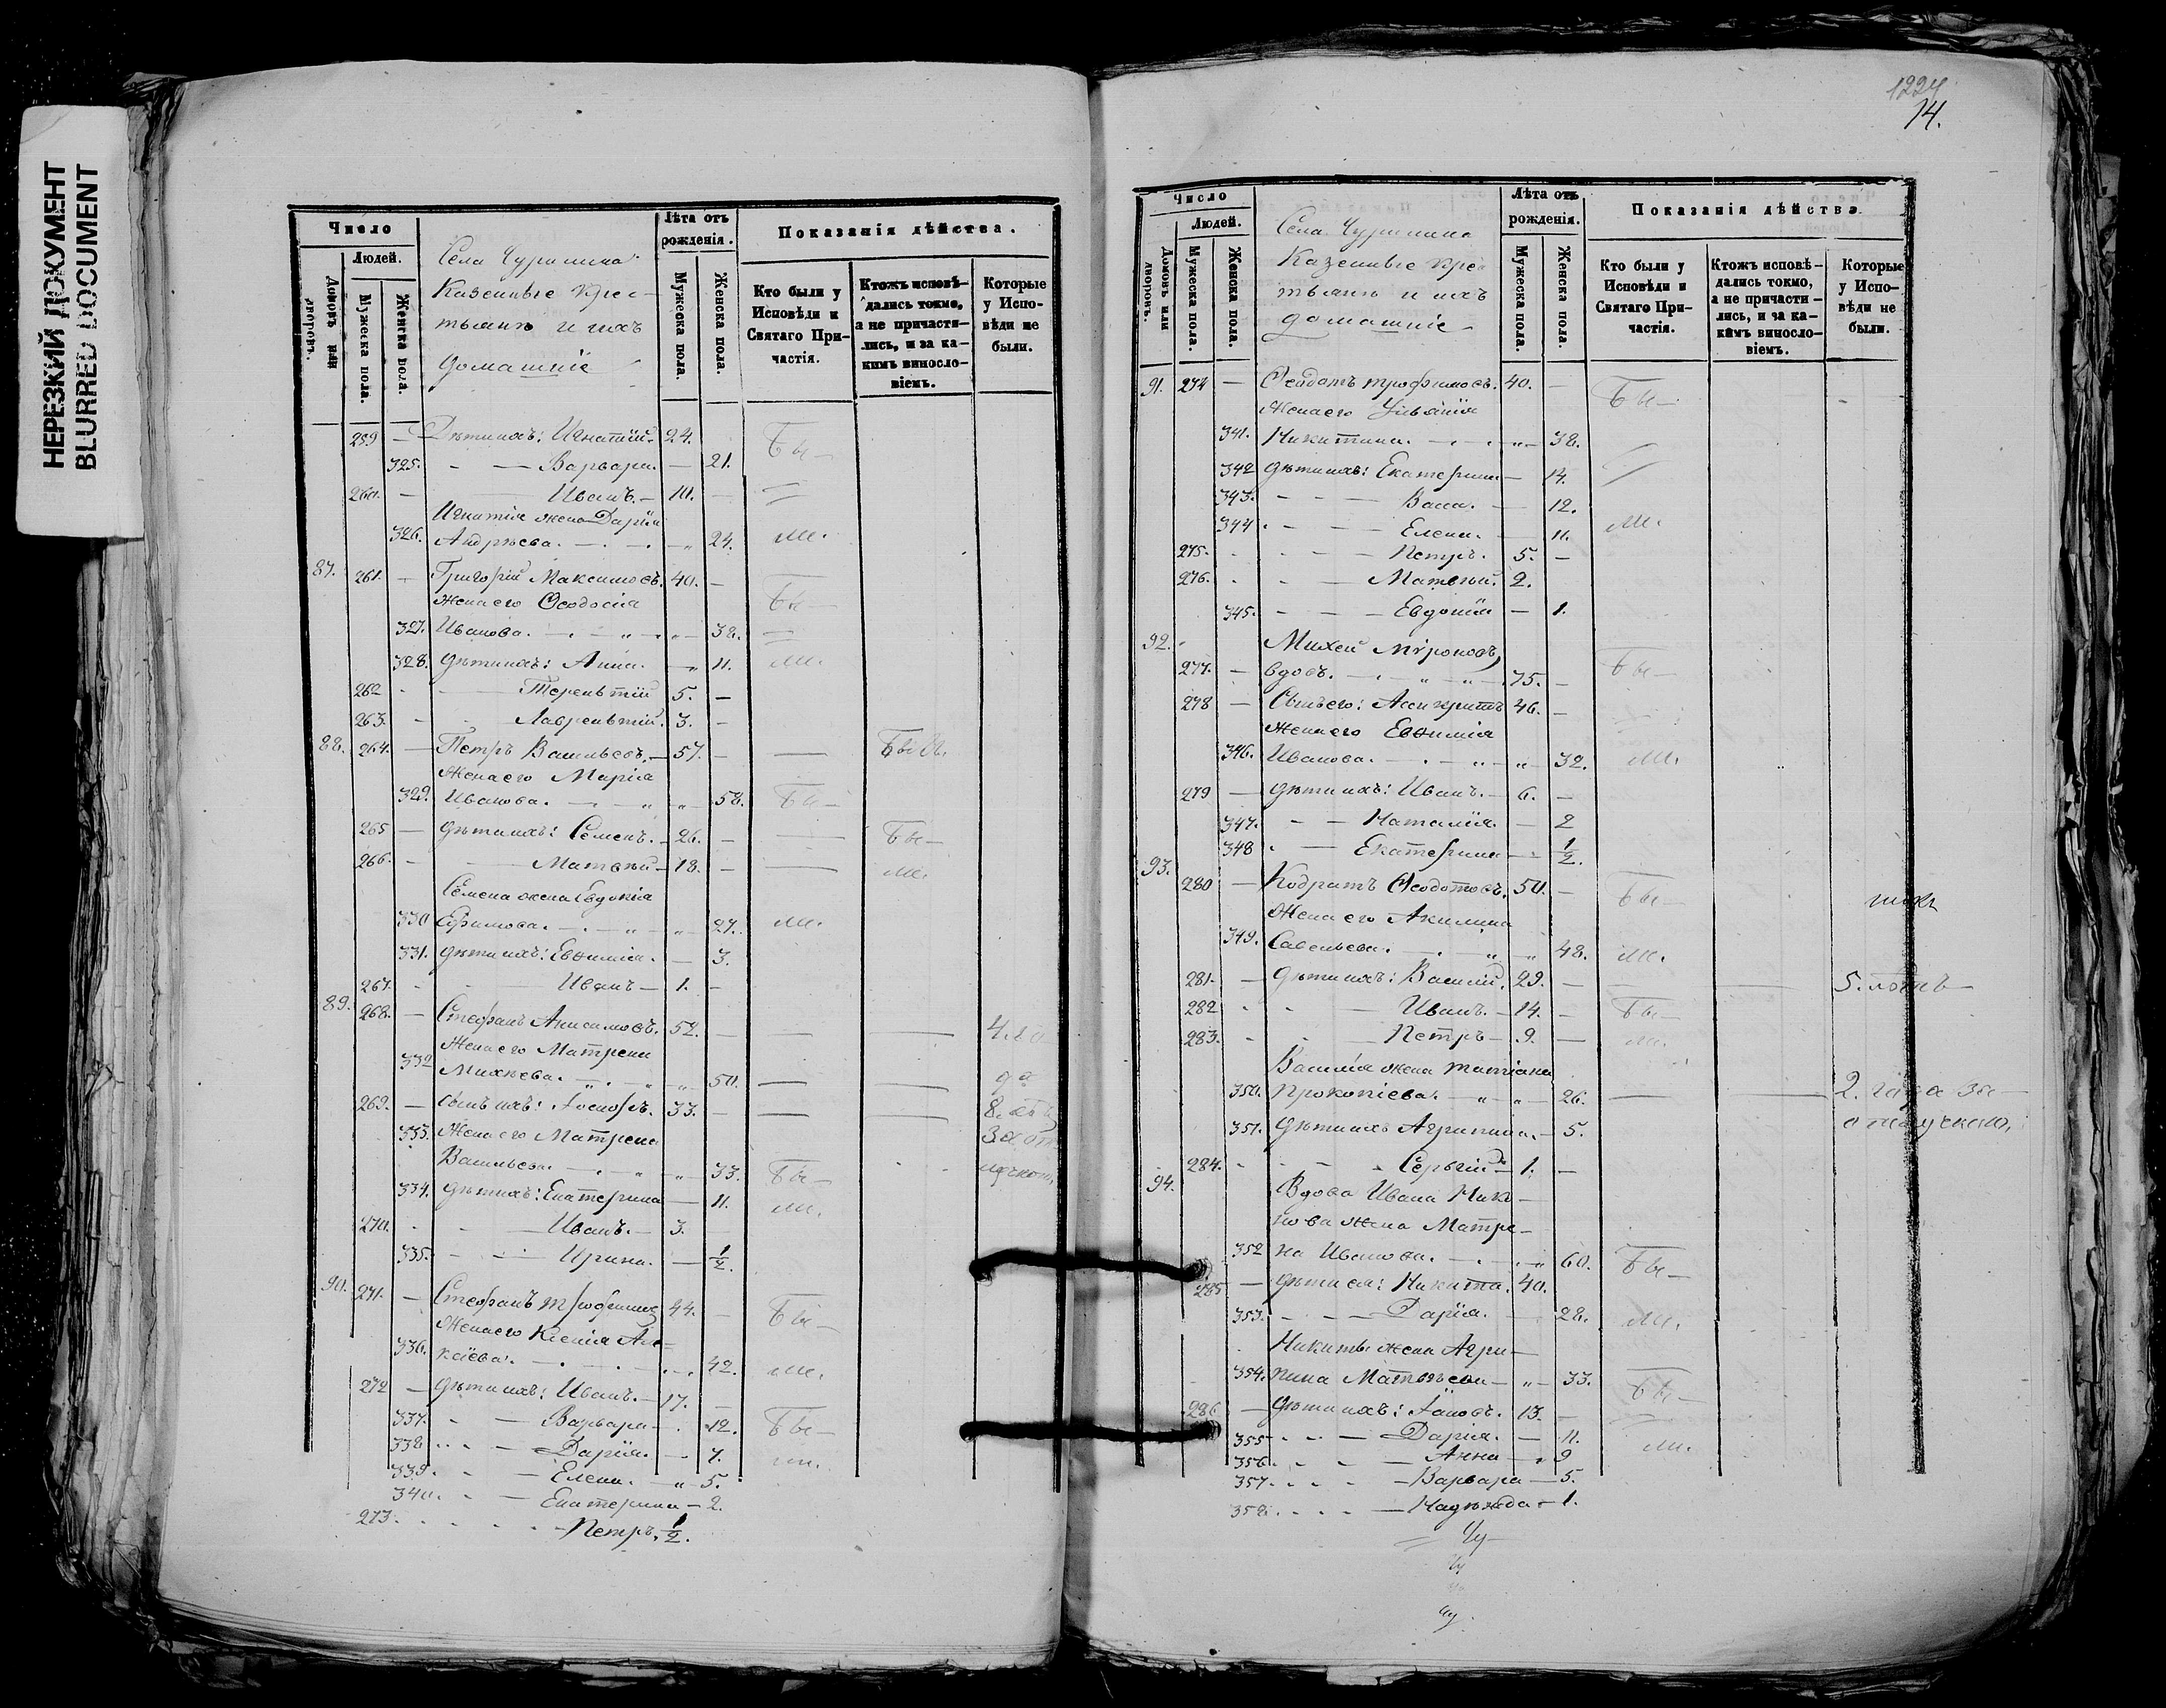 НЕРЕЗКИЙ ДОКУМЕНТ
BLURRED DOCUMENT
Число
Людей.
Домовъ или дворовъ.
Мужеска пола.
Женска пола.
Села Чурилина
Казенные крес-
тьяне и ихъ
домашніе
Лѣта отъ рожденія.
Мужеска пола.
Женска пола.
Показанія дѣйства.
Кто были у Исповѣди и Святаго При-частія.
Ктожъ исповѣ-дались токмо, а не причасти-лись, и за ка-кимъ винословіемъ.
Которые у Испо-вѣди не были.
259 — Дѣти ихъ: Игнатій. 24. Бы—
325. - — Варвара. — 21.
260. — Иванъ. — 10. —
Игнатія жена Дарія
326. Андрѣева. — . — . — „ 24. ли.
87. 261. — Григорій Максимовъ. 40. —
Жена его Ѳеодосія Бы—
327. Иванова. — . — „ — „ — 38.
328. дѣти ихъ: Анна. — „ 11. ли.
262 - — Терентій 5. —
263. - - Лаврентій. 3. —
88. 264. — Петръ Васильевъ. — 57. — — Были.
Жена его Марія
329. Иванова. — . — „ „ — 58. Бы—
265 — дѣти ихъ: Семенъ. — 26. — — Бы—
266. - — Матвѣй — 18. — — ли.
Семена жена Евдокія
330 Ефимова. — . — „ — „ — 27. ли.
331. дѣти ихъ: Евѳимія. — 3.
267. - - Иванъ — 1. —
89. 268. — Стефанъ Анисимовъ. 52. — — —
Жена его Матрена
332 Михѣева. „ . — „ — „ — 50. — —
269. — сынъ ихъ: Іосифъ. 33. — — — 8.
333. Жена его Матрена
Васильева. — . — „ — „ — 33. Бы—
334. дѣти ихъ: Екатерина — 11. ли.
270. - - — Иванъ. — 3.
335. - - — Ирина. — 1/2.
90. 271. — Стефанъ Трофимовъ 44. — Бы—
Жена его Ксенія Али-
336. каіева. — . — . — . — 42. ли.
272 — дѣти ихъ: Иванъ. — 17. —
337. - — Варвара — . 12. Бы—
338 - - — Дарія. — 7. ли.
339. - — Елена. — „ 5.
340. - — Екатерина — 2.
273. - - - - — Петръ. 1/2.
1224
14.
Число
Людей.
Домовъ или дворовъ.
Мужеска пола.
Женска пола.
Села Чурилина
Казенные крес-
тьяне и ихъ
домашніе
Лѣта отъ рожденія.
Мужеска пола.
Женска пола.
Показанія дѣйства.
Кто были у Исповѣди и Святаго При-частія.
Ктожъ исповѣ-дались токмо, а не причасти-лись, и за ка-кимъ винословіемъ.
Которые у Испо-вѣди не были.
91. 274 — Ѳеодотъ Трофимовъ. 40. — Бы—
Жена его Ульянія
341. Никитина. — . — . „ — 38.
342 дѣти ихъ: Екатерина — 14.
343. - - — Васса. — 12.
344 - - — Елена. — 11. ли.
275. - - — Петръ. 5. —
276. - - — Матвѣй. 2.
345. - - — Евдокія — 1.
92. Михей Мѵроновъ,
277. — вдовъ. — . — „ — „ — 75. — Бы—
278 — Сынъ его: Асигкритъ 46. —
Жена его Евѳимія
346. Иванова. — . — „ — „ — 32. ли.
279 — дѣти ихъ: Иванъ. — 6. —
347. - - Наталія. — 2
348 - — Екатерина — - 1/2.
93. 280 — Кодратъ Ѳеодотовъ. 50. — Бы—
Жена его Акилина
349. Савельева. — . — „ — „ — 48. ли.
281. — дѣти ихъ: Василій. 29. — — 5. лѣтъ—
282 - - — Иванъ. — 14. — Бы—
283. - - Петръ — 9. — ли.
Василія жена Татіана
350. Прокопіева. — „ — „ — 26. — — 2. года за
351. дѣти ихъ Агрипина. — 5. отлучкою.
284. - - - Сергій — 1. —
94. Вдова Ивана Ник-
нова жена Матре-
352 на Иванова. — . — . — „ 60. Бы—
285 — дѣти ея: Никита. 40.
353. - - — Дарія. — 28. ли.
Никиты жена Агри-
354. пина Матвѣева — „ — 33. Бы—
286 — дѣти ихъ: Іаковъ. 13. —
355 - - — Дарія. — 11. ли.
356. - - - — Анна — „ 9
357. - - - — Варвара — 5.
358. - - - — Надежда — 1.
Чу